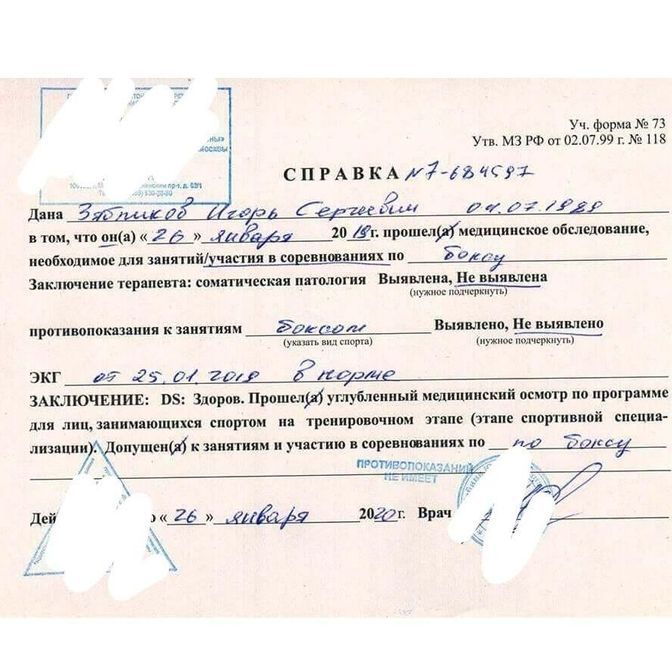 Уч. форма № 73
Утв. МЗ РФ от 02.07.99 г. № 118
СПРАВКА № 7-684597
Дана Зяблинов Игорь Сергеевич 04.07.1989
в том, что он(а) «26» января 2019г. прошел(а) медицинское обследование,
необходимое для занятий/участия в соревнованиях по боксу
Заключение терапевта: соматическая патология Выявлена, Не выявлена
(нужное подчеркнуть)
противопоказания к занятиям боксом Выявлено, Не выявлено
(указать вид спорта) (нужное подчеркнуть)
ЭКГ от 25.01.2019 в норме
ЗАКЛЮЧЕНИЕ: DS: Здоров. Прошел(а) углубленный медицинский осмотр по программе
для лиц, занимающихся спортом на тренировочном этапе (этапе спортивной специа-
лизации). Допущен(а) к занятиям и участию в соревнованиях по по боксу
ПРОТИВОПОКАЗАНИЙ
НЕ ИМЕЕТ
Дей о «26» января 2020г. Врач